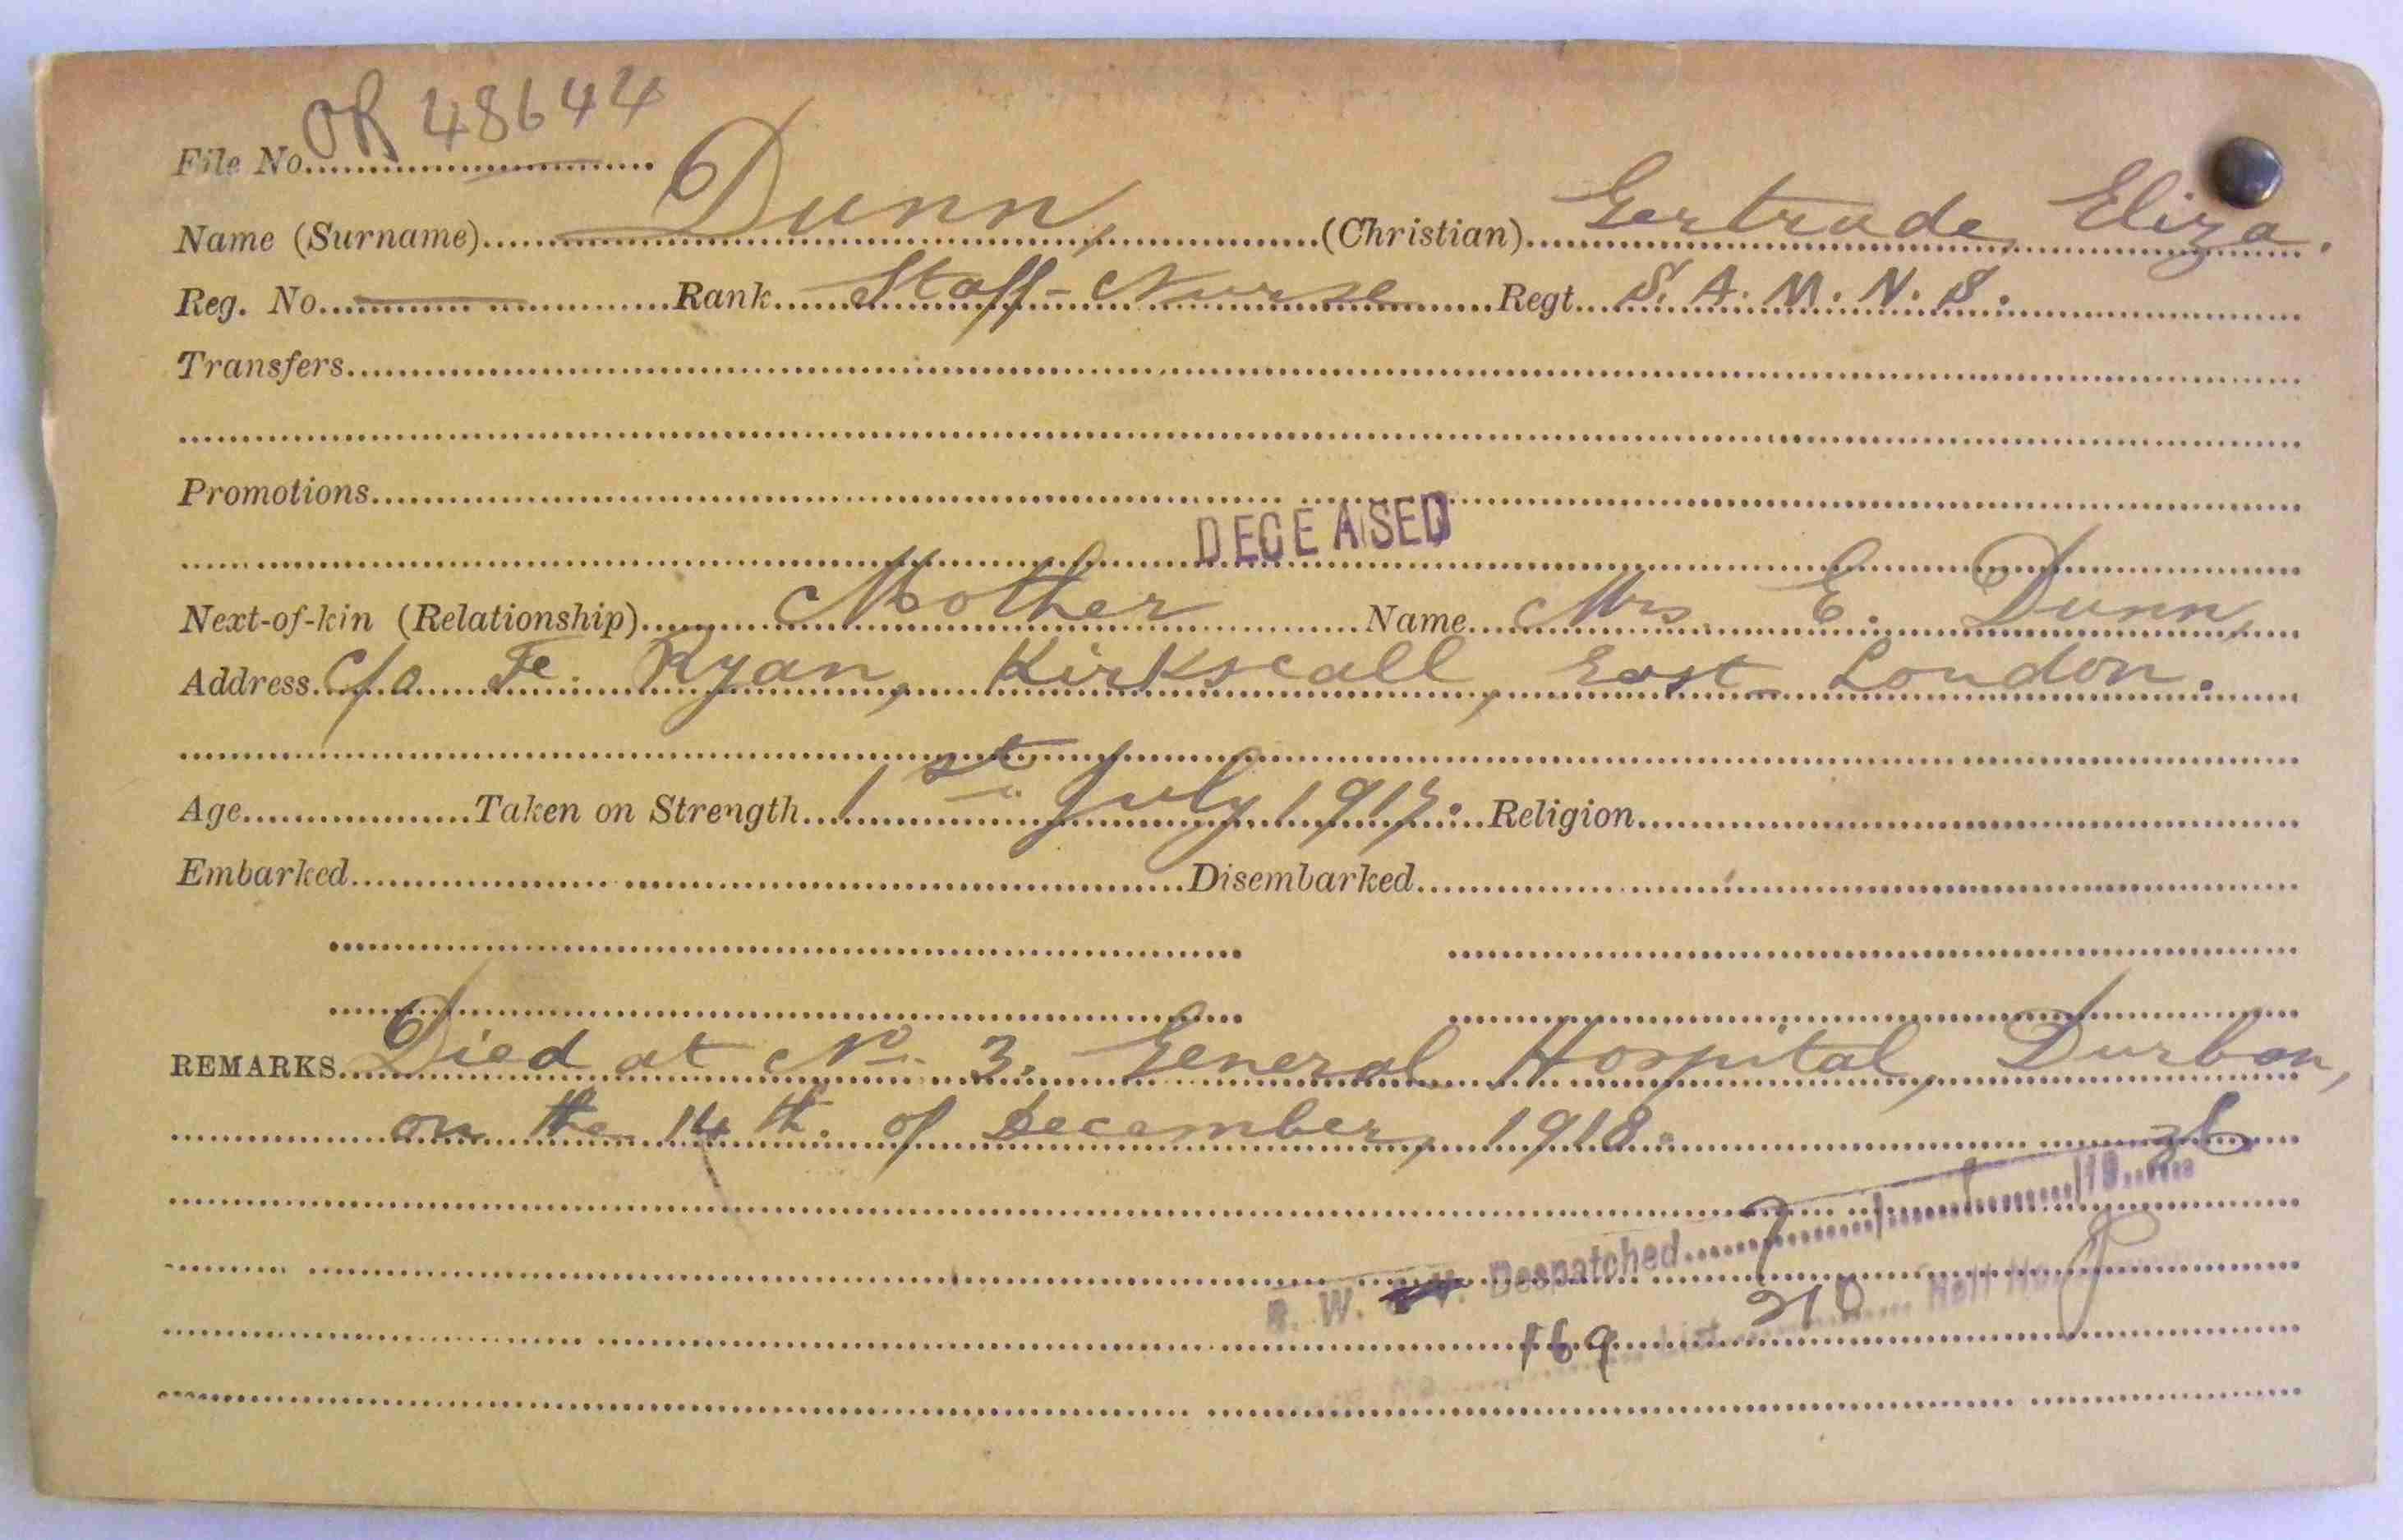 File No. OR 48644
Name (Surname) Dunn, (Christian) Gertrude Eliza.
Reg. No. Rank Staff-Nurse Regt. S.A.M.N.S.
Transfers
Promotions
DECEASED
Next-of-kin (Relationship) Mother Name Mrs. E. Dunn,
Address c/o Ryan, Kirkscall, East London.
Age Taken on Strength 1st July 1917. Religion
Embarked Disembarked
REMARKS Died at No. 3. General Hospital, Durban,
on the 14th. of December, 1918.
26
W. Despatched 7 / / 19
169 List 210 Roll No.